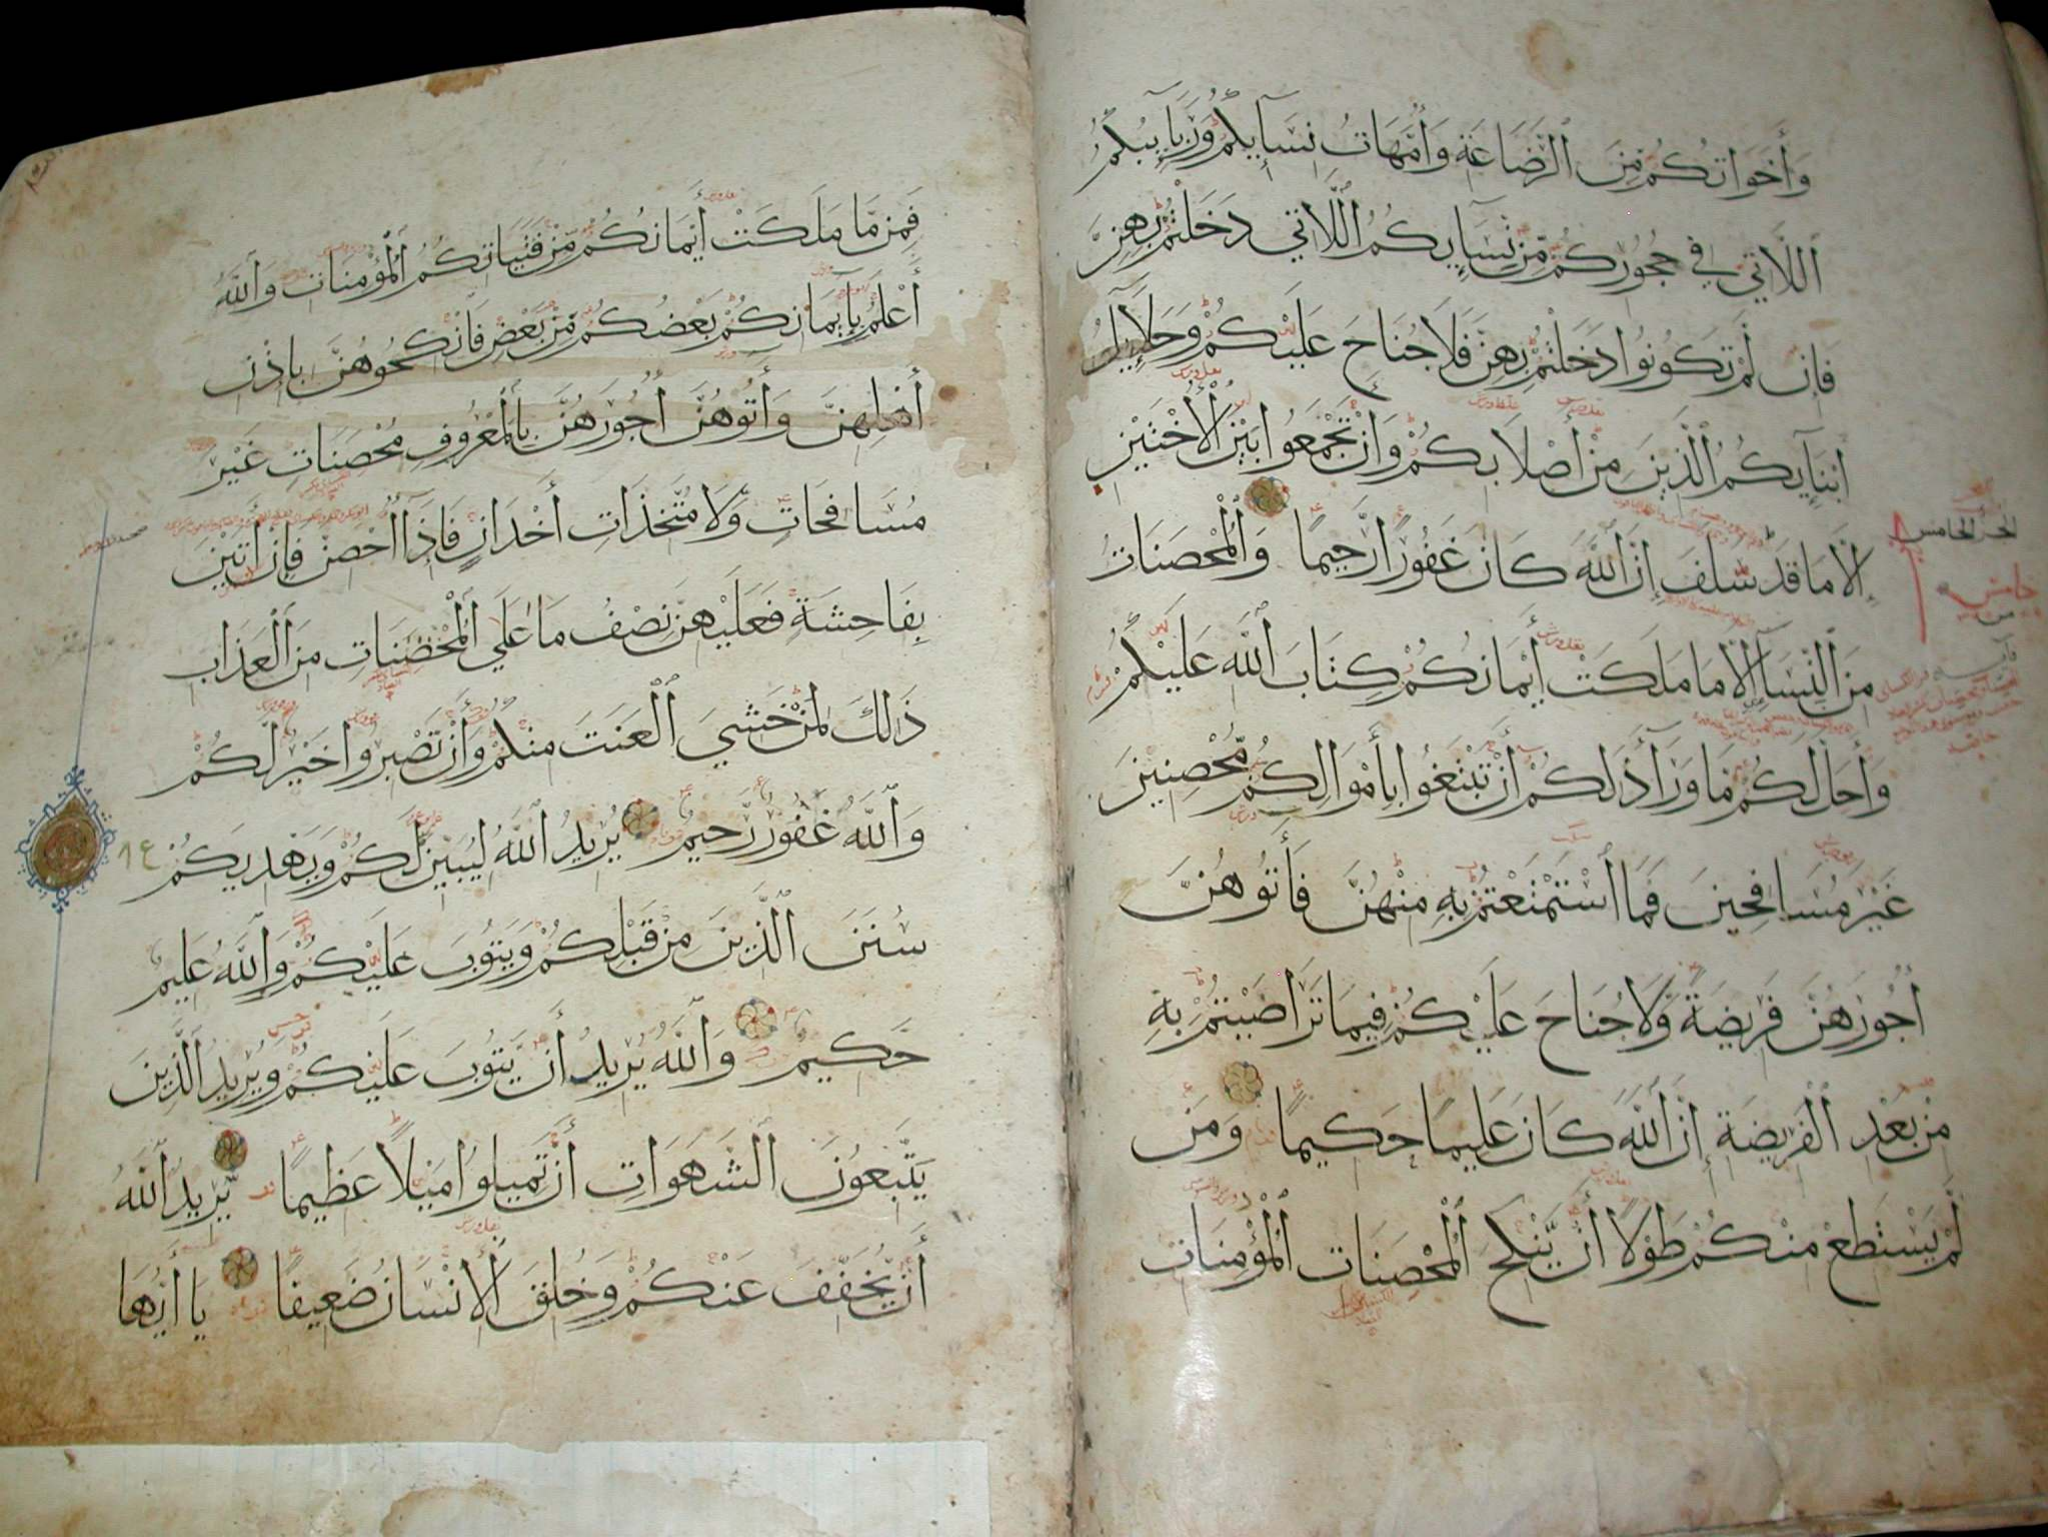 وَأَخَوَاتُكُمْ مِنَ ٱلرَّضَاعَةِ وَأُمَّهَاتُ نِسَآئِكُمْ وَرَبَآئِبُكُمُ
ٱللَّاتِي فِي حُجُورِكُمْ مِّنْ نِسَآئِكُمُ ٱللَّاتِي دَخَلْتُمْ بِهِنَّ
فَإِن لَّمْ تَكُونُوا دَخَلْتُمْ بِهِنَّ فَلَا جُنَاحَ عَلَيْكُمْ وَحَلَآئِلُ
أَبْنَآئِكُمُ ٱلَّذِينَ مِنْ أَصْلَابِكُمْ وَأَنْ تَجْمَعُوا بَيْنَ ٱلْأُخْتَيْنِ
إِلَّا مَا قَدْ سَلَفَ إِنَّ ٱللَّهَ كَانَ غَفُورًا رَّحِيمًا وَٱلْمُحْصَنَاتُ
مِنَ ٱلنِّسَآءِ إِلَّا مَا مَلَكَتْ أَيْمَانُكُمْ كِتَابَ ٱللَّهِ عَلَيْكُمْ
وَأُحِلَّ لَكُمْ مَا وَرَآءَ ذَلِكُمْ أَنْ تَبْتَغُوا بِأَمْوَالِكُمْ مُّحْصِنِينَ
غَيْرَ مُسَافِحِينَ فَمَا ٱسْتَمْتَعْتُمْ بِهِ مِنْهُنَّ فَأَتُوهُنَّ
أُجُورَهُنَّ فَرِيضَةً وَلَا جُنَاحَ عَلَيْكُمْ فِيمَا تَرَاضَيْتُمْ بِهِ
مِنْ بَعْدِ ٱلْفَرِيضَةِ إِنَّ ٱللَّهَ كَانَ عَلِيمًا حَكِيمًا وَمَن
لَّمْ يَسْتَطِعْ مِنْكُمْ طَوْلًا أَنْ يَّنْكِحَ ٱلْمُحْصَنَاتِ ٱلْمُؤْمِنَاتِ
الجزء الخامس
فَمِنْ مَّا مَلَكَتْ أَيْمَانُكُمْ مِّنْ فَتَيَاتِكُمُ ٱلْمُؤْمِنَاتِ وَٱللَّهُ
أَعْلَمُ بِإِيمَانِكُمْ بَعْضُكُمْ مِّنْ بَعْضٍ فَٱنْكِحُوهُنَّ بِإِذْنِ
أَهْلِهِنَّ وَأَتُوهُنَّ أُجُورَهُنَّ بِٱلْمَعْرُوفِ مُحْصَنَاتٍ غَيْرَ
مُسَافِحَاتٍ وَّلَا مُتَّخِذَاتِ أَخْدَانٍ فَإِذَآ أُحْصِنَّ فَإِنْ أَتَيْنَ
بِفَاحِشَةٍ فَعَلَيْهِنَّ نِصْفُ مَا عَلَى ٱلْمُحْصَنَاتِ مِنَ ٱلْعَذَابِ
ذَلِكَ لِمَنْ خَشِيَ ٱلْعَنَتَ مِنْكُمْ وَأَنْ تَصْبِرُوا خَيْرٌ لَّكُمْ
وَٱللَّهُ غَفُورٌ رَّحِيمٌ يُرِيدُ ٱللَّهُ لِيُبَيِّنَ لَكُمْ وَيَهْدِيَكُمْ
٨٤
سُنَنَ ٱلَّذِينَ مِنْ قَبْلِكُمْ وَيَتُوبَ عَلَيْكُمْ وَٱللَّهُ عَلِيمٌ
حَكِيمٌ وَٱللَّهُ يُرِيدُ أَنْ يَّتُوبَ عَلَيْكُمْ وَيُرِيدُ ٱلَّذِينَ
يَتَّبِعُونَ ٱلشَّهَوَاتِ أَنْ تَمِيلُوا مَيْلًا عَظِيمًا يُرِيدُ ٱللَّهُ
أَنْ يُّخَفِّفَ عَنْكُمْ وَخُلِقَ ٱلْإِنْسَانُ ضَعِيفًا يَا أَيُّهَا